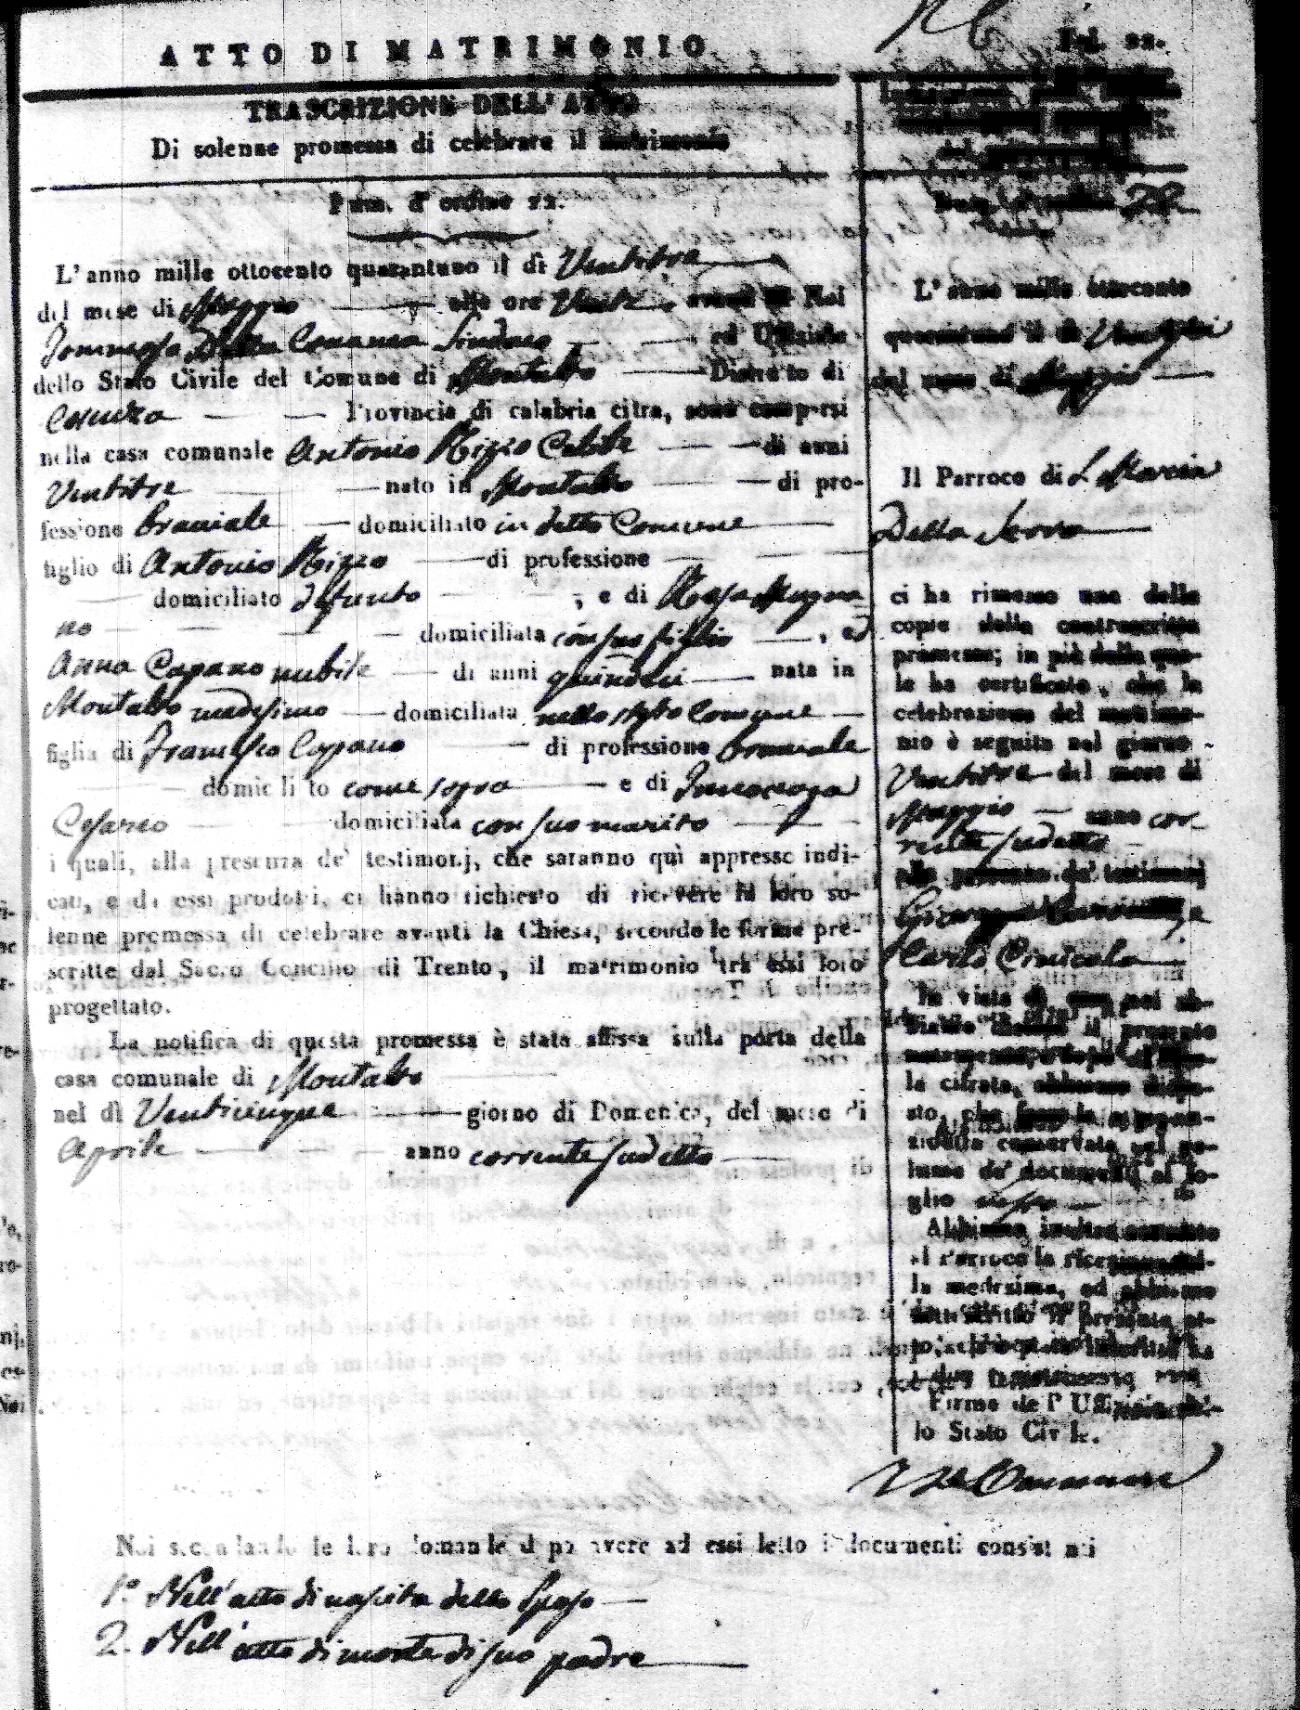 ATTO DI MATRIMONIO
TRASCRIZIONE DELL' ATTO
Di solenne promessa di celebrare il matrimonio
Num. d' ordine 22.
L' anno mille ottocento quarantuno il dì Ventitre
del mese di Maggio alle ore Venti, avanti di Noi
Tommaso Della Comanna Sindaco ed Uffiziale
dello Stato Civile del Comune di Montalto Distretto di
Cosenza Provincia di calabria citra, sono comparsi
nella casa comunale Antonio Rizzo Celibe di anni
Ventitre nato in Montalto di pro-
fessione bracciale domiciliato in detto Comune
figlio di Antonio Rizzo di professione
domiciliato defunto , e di Rosa Mugna
no domiciliata con suo figlio , ed
Anna Capano nubile di anni quindeci nata in
Montalto medesimo domiciliata nello stesso Comune
figlia di Francesco Capano di professione bracciale
domiciliato come sopra e di Innocenza
Cesareo domiciliata con suo marito
i quali, alla presenza de' testimonj, che saranno quì appresso indi-
cati, e da essi prodotti, ci hanno richiesto di ricevere la loro so-
lenne promessa di celebrare avanti la Chiesa, secondo le forme pre-
scritte dal Sacro Concilio di Trento, il matrimonio tra essi loro
progettato.
La notifica di questa promessa è stata affissa sulla porta della
casa comunale di Montalto
nel dì Venticinque giorno di Domenica, del mese di
Aprile anno corrente sudetto
Noi secondando le loro domande dopo avere ad essi letto i documenti consistenti
1.° Nell' atto di nascita dello Sposo
2. Nell' atto di morte di suo padre
L' anno mille ottocento
quarantuno il dì
del mese di Maggio
Il Parroco di S. Maria
Della Serra
ci ha rimesso una delle
copie della controscritta
promessa; in piè della qua-
le ha certificato, che la
celebrazione del matrimo-
nio è seguita nel giorno
Ventitre del mese di
Maggio anno cor-
rente sudetto
alla presenza de' testimonj
Giuseppe
Carlo
In vista di essa noi ab-
biamo disteso il presente
la cifrata, abbiamo dispo-
sto, che fosse la
conservata nel vo-
lume de' documenti al fo-
glio
Abbiamo inoltre accusato
al Parroco la ricezione del-
la medesima, ed abbiamo
sottoscritto il presente at-
to,
due
Firma de l' Uffiziale del-
lo Stato Civile.